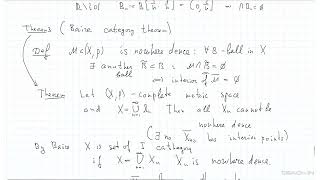 ℝ∖{0}  Bₙ = B[1/n ; 1/n] = (0, 2/n] → ∩Bₙ = ∅
Theorem 3 (Baire category theorem)
Def M⊂(X,ρ) is nowhere dence: ∀ B-ball in X
∃ another B̃ ⊂ B : M∩B̃ = ∅
ball ⟺ interior of M̄ = ∅
Theorem Let (X,ρ) - complete metric space
and X = ∪ Xₙ Then all Xₙ cannot be
nowhere dence
(∃ n₀ X̄ₙ₀ has interior points)
By Baire X is set of I cathegory
if X = ∪ Xₙ Xₙ is nowhere dence